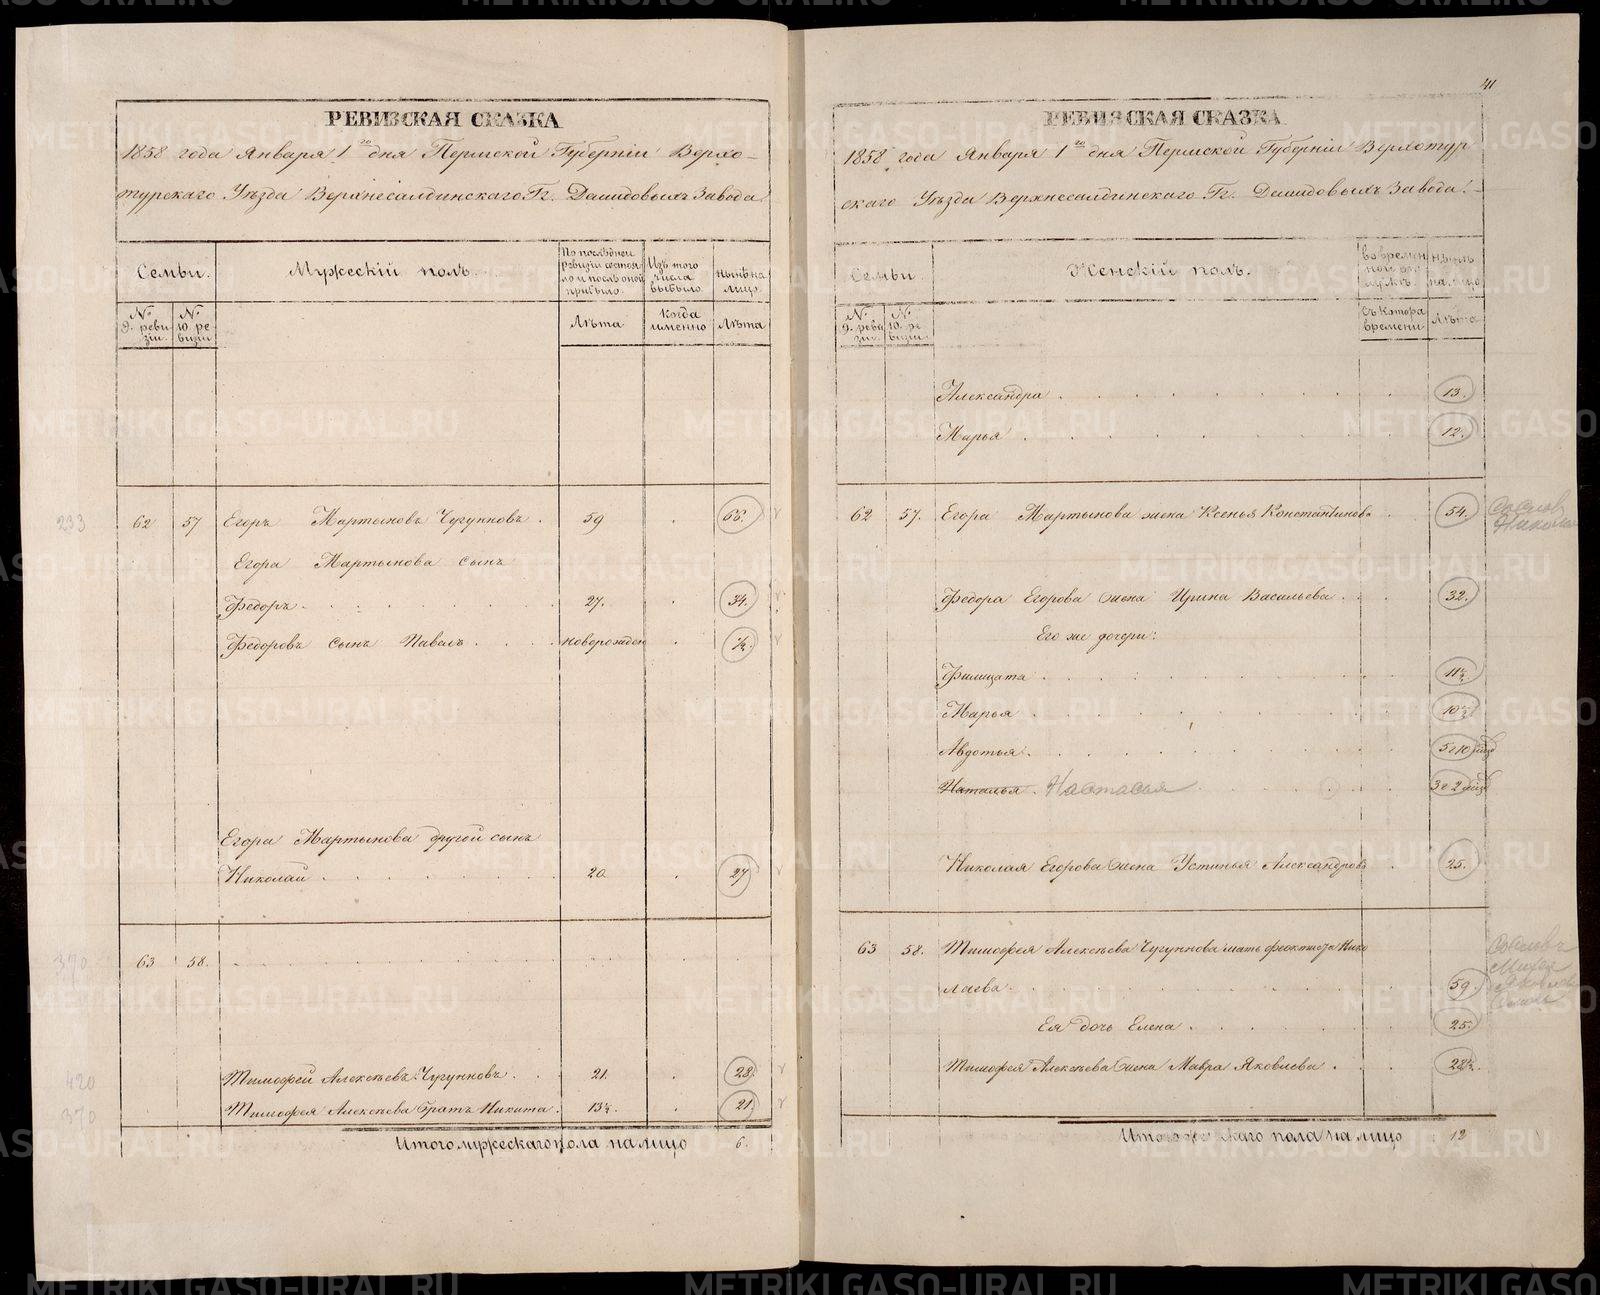 РЕВИЗСКАЯ СКАЗКА
1858 года Января 1го дня Пермской Губерніи Верхо-
турскаго Уѣзда Верхнесалдинскаго Гг. Демидовыхъ Завода
Семьи.
Мужескій полъ.
По послѣдней ревизіи состояло и послѣ оной прибыло.
Изъ того числа выбыло.
Нынѣ на лицо.
№ 9. ревизіи.
№ 10. ревизіи.
Лѣта
Когда именно
Лѣта
233 62 57 Егоръ Мартыновъ Чугуновъ . 59 . 66.
Егора Мартынова сынъ
Федоръ 27. . 34.
Федоровъ сынъ Павелъ новорожден . ½.
Егора Мартынова другой сынъ
Николай 20 . 27
370 63 58.
420 Тимофей Алексѣевъ Чугуновъ. 21. . 28.
370 Тимофея Алексѣева братъ Никита. 13½. . 21.
Итого мужескаго пола на лицо 6.
41
РЕВИЗСКАЯ СКАЗКА
1858 года Января 1го дня Пермской Губерніи Верхотур
скаго Уѣзда Верхнесалдинскаго Гг. Демидовыхъ Завода.
Семьи.
Женскій полъ.
во временной отлучкѣ.
Нынѣ на лицо
№ 9. ревизіи.
№ 10. ревизіи.
Съ котора времени
Лѣта
Александра 13.
Марья 12.
62 57. Егора Мартынова жена Ксенья Константинова 54.
Федора Егорова жена Ирина Васильева 32.
Его же дочери:
Филицата 11½
Марья 10½
Авдотья. 5 и 10
Наталья. Настасья 3 и 2
Николая Егорова жена Устинья Александров 25.
63 58. Тимофея Алексѣева Чугунова мать Феоктиста Нико
лаева. 59.
Ея дочь Елена 25.
Тимофея Алексѣева жена Мавра Яковлева. 28½.
Итого женскаго пола на лицо 12
METRIKI.GASO-URAL.RU